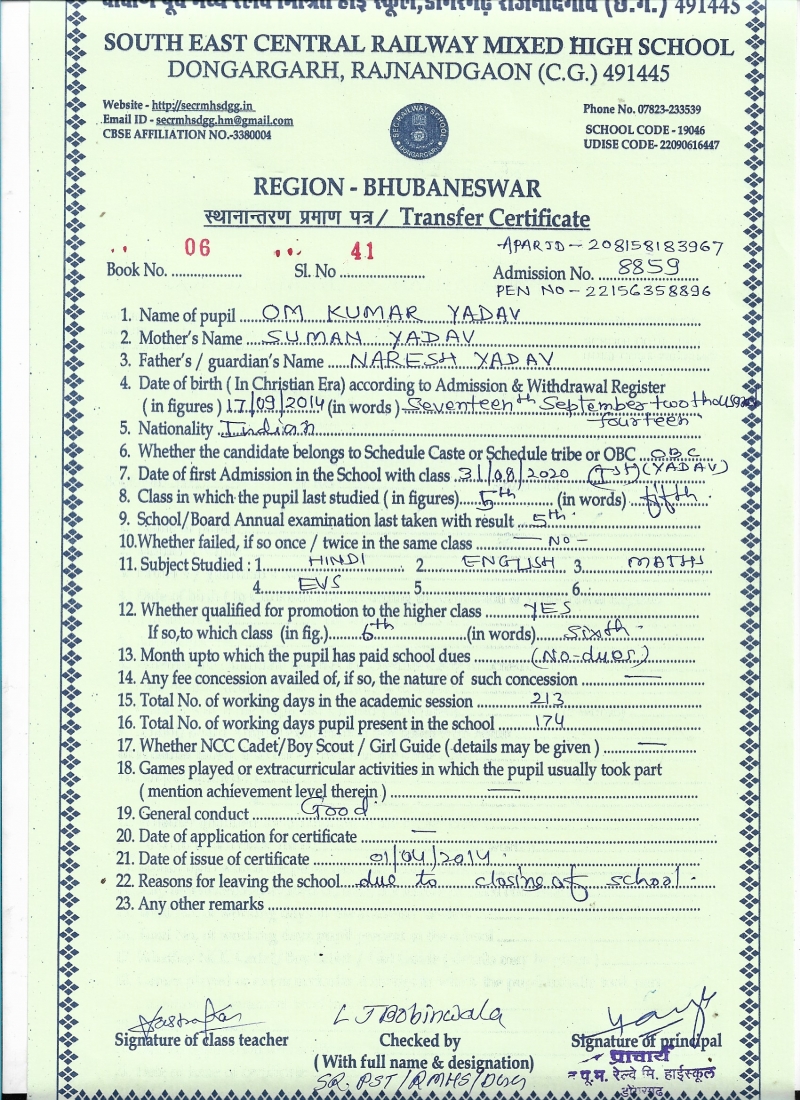 SOUTH EAST CENTRAL RAILWAY MIXED HIGH SCHOOL
DONGARGARH, RAJNANDGAON (C.G.) 491445
Website - http://secrmhsdgg.in
Email ID - secrmhsdgg.hm@gmail.com
CBSE AFFILIATION NO.-3380004
Phone No. 07823-233539
SCHOOL CODE - 19046
UDISE CODE- 22090616447
SEC RAILWAY SCHOOL
DONGARGARH
REGION - BHUBANESWAR
स्थानान्तरण प्रमाण पत्र / Transfer Certificate
APARID - 208158183967
Book No. 06 Sl. No 41 Admission No. 8859
PEN NO - 22156358896
1. Name of pupil OM KUMAR YADAV
2. Mother's Name SUMAN YADAV
3. Father's / guardian's Name NARESH YADAV
4. Date of birth ( In Christian Era) according to Admission & Withdrawal Register
( in figures ) 17/09/2014 (in words ) Seventeenth September two thousand
fourteen
5. Nationality Indian
6. Whether the candidate belongs to Schedule Caste or Schedule tribe or OBC OBC
7. Date of first Admission in the School with class 31/08/2020 (Ist) (YADAV)
8. Class in which the pupil last studied ( in figures) 5th (in words) fifth
9. School/Board Annual examination last taken with result 5th
10.Whether failed, if so once / twice in the same class — NO -
11. Subject Studied : 1. HINDI 2 ENGLISH 3. MATHS
4. EVS 5. 6.
12. Whether qualified for promotion to the higher class YES
If so,to which class (in fig.) 6th (in words) sixth
13. Month upto which the pupil has paid school dues (No-dues)
14. Any fee concession availed of, if so, the nature of such concession —
15. Total No. of working days in the academic session 213
16. Total No. of working days pupil present in the school 174
17. Whether NCC Cadet/Boy Scout / Girl Guide ( details may be given ) —
18. Games played or extracurricular activities in which the pupil usually took part
( mention achievement level therein ) —
19. General conduct Good
20. Date of application for certificate —
21. Date of issue of certificate 01/04/2014
22. Reasons for leaving the school due to closing of school
23. Any other remarks
L J Bobinwala
Signature of class teacher Checked by Signature of principal
(With full name & designation)
SR. PST/RMHS/DGG
प्राचार्य
पू.म. रेल्वे मि. हाईस्कूल
डोंगरगढ़